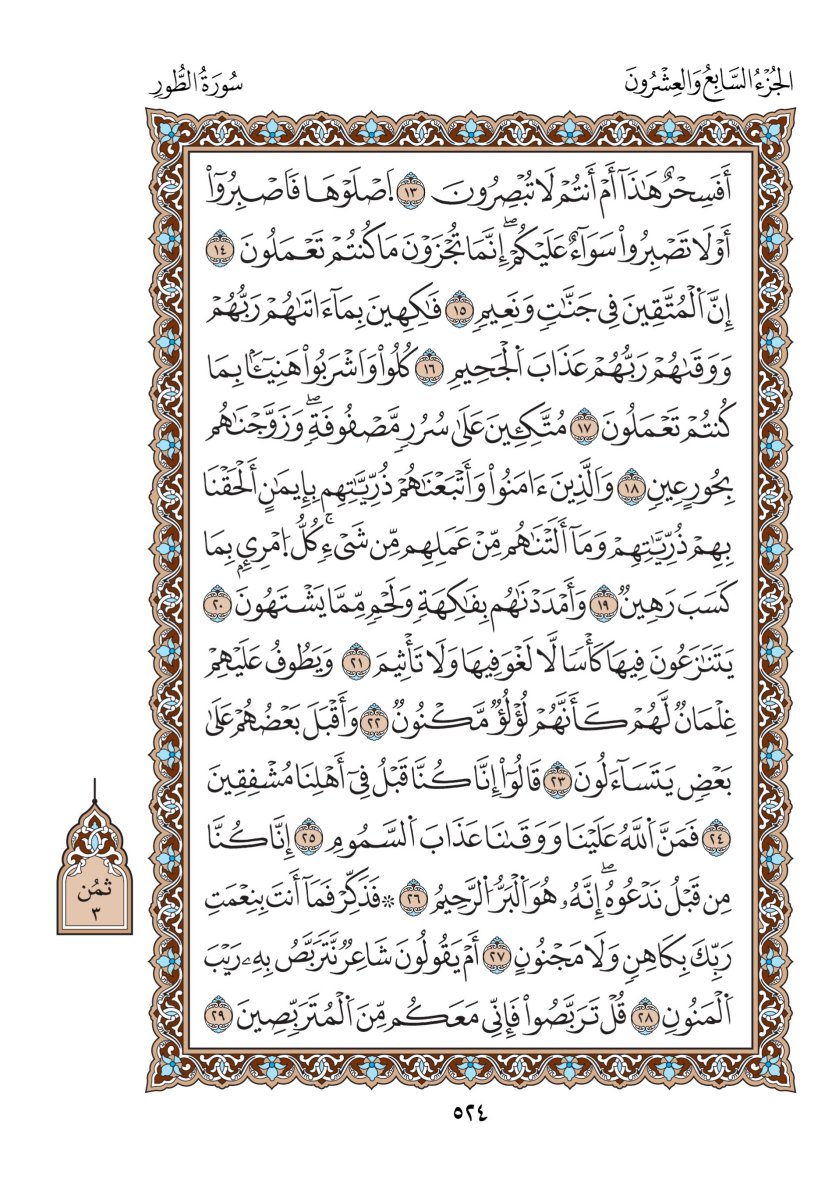 الجُزْءُ السَّابِعُ وَالعِشْرُونَ
سُورَةُ الطُّورِ
أَفَسِحْرٌ هَٰذَآ أَمْ أَنتُمْ لَا تُبْصِرُونَ ١٣ ٱصْلَوْهَا فَٱصْبِرُوٓا۟
أَوْ لَا تَصْبِرُوا۟ سَوَآءٌ عَلَيْكُمْۖ إِنَّمَا تُجْزَوْنَ مَا كُنتُمْ تَعْمَلُونَ ١٤
إِنَّ ٱلْمُتَّقِينَ فِى جَنَّٰتٍ وَنَعِيمٍ ١٥ فَٰكِهِينَ بِمَآ ءَاتَىٰهُمْ رَبُّهُمْ
وَوَقَىٰهُمْ رَبُّهُمْ عَذَابَ ٱلْجَحِيمِ ١٦ كُلُوا۟ وَٱشْرَبُوا۟ هَنِيٓـًٔۢا بِمَا
كُنتُمْ تَعْمَلُونَ ١٧ مُتَّكِـِٔينَ عَلَىٰ سُرُرٍ مَّصْفُوفَةٍۖ وَزَوَّجْنَٰهُم
بِحُورٍ عِينٍ ١٨ وَٱلَّذِينَ ءَامَنُوا۟ وَأَتْبَعْنَٰهُمْ ذُرِّيَّٰتِهِم بِإِيمَٰنٍ أَلْحَقْنَا
بِهِمْ ذُرِّيَّٰتِهِمْ وَمَآ أَلَتْنَٰهُم مِّنْ عَمَلِهِم مِّن شَىْءٍۚ كُلُّ ٱمْرِىِٕۭ بِمَا
كَسَبَ رَهِينٌ ١٩ وَأَمْدَدْنَٰهُم بِفَٰكِهَةٍ وَلَحْمٍ مِّمَّا يَشْتَهُونَ ٢٠
يَتَنَٰزَعُونَ فِيهَا كَأْسًا لَّا لَغْوَ فِيهَا وَلَا تَأْثِيمَ ٢١ وَيَطُوفُ عَلَيْهِمْ
غِلْمَانٌ لَّهُمْ كَأَنَّهُمْ لُؤْلُؤٌ مَّكْنُونٌ ٢٢ وَأَقْبَلَ بَعْضُهُمْ عَلَىٰ
بَعْضٍ يَتَسَآءَلُونَ ٢٣ قَالُوٓا۟ إِنَّا كُنَّا قَبْلُ فِىٓ أَهْلِنَا مُشْفِقِينَ
٢٤ فَمَنَّ ٱللَّهُ عَلَيْنَا وَوَقَىٰنَا عَذَابَ ٱلسَّمُومِ ٢٥ إِنَّا كُنَّا
مِن قَبْلُ نَدْعُوهُۖ إِنَّهُۥ هُوَ ٱلْبَرُّ ٱلرَّحِيمُ ٢٦ *فَذَكِّرْ فَمَآ أَنتَ بِنِعْمَتِ
رَبِّكَ بِكَاهِنٍ وَلَا مَجْنُونٍ ٢٧ أَمْ يَقُولُونَ شَاعِرٌ نَّتَرَبَّصُ بِهِۦ رَيْبَ
ٱلْمَنُونِ ٢٨ قُلْ تَرَبَّصُوا۟ فَإِنِّى مَعَكُم مِّنَ ٱلْمُتَرَبِّصِينَ ٢٩
ثُمُن
٣
٥٢٤